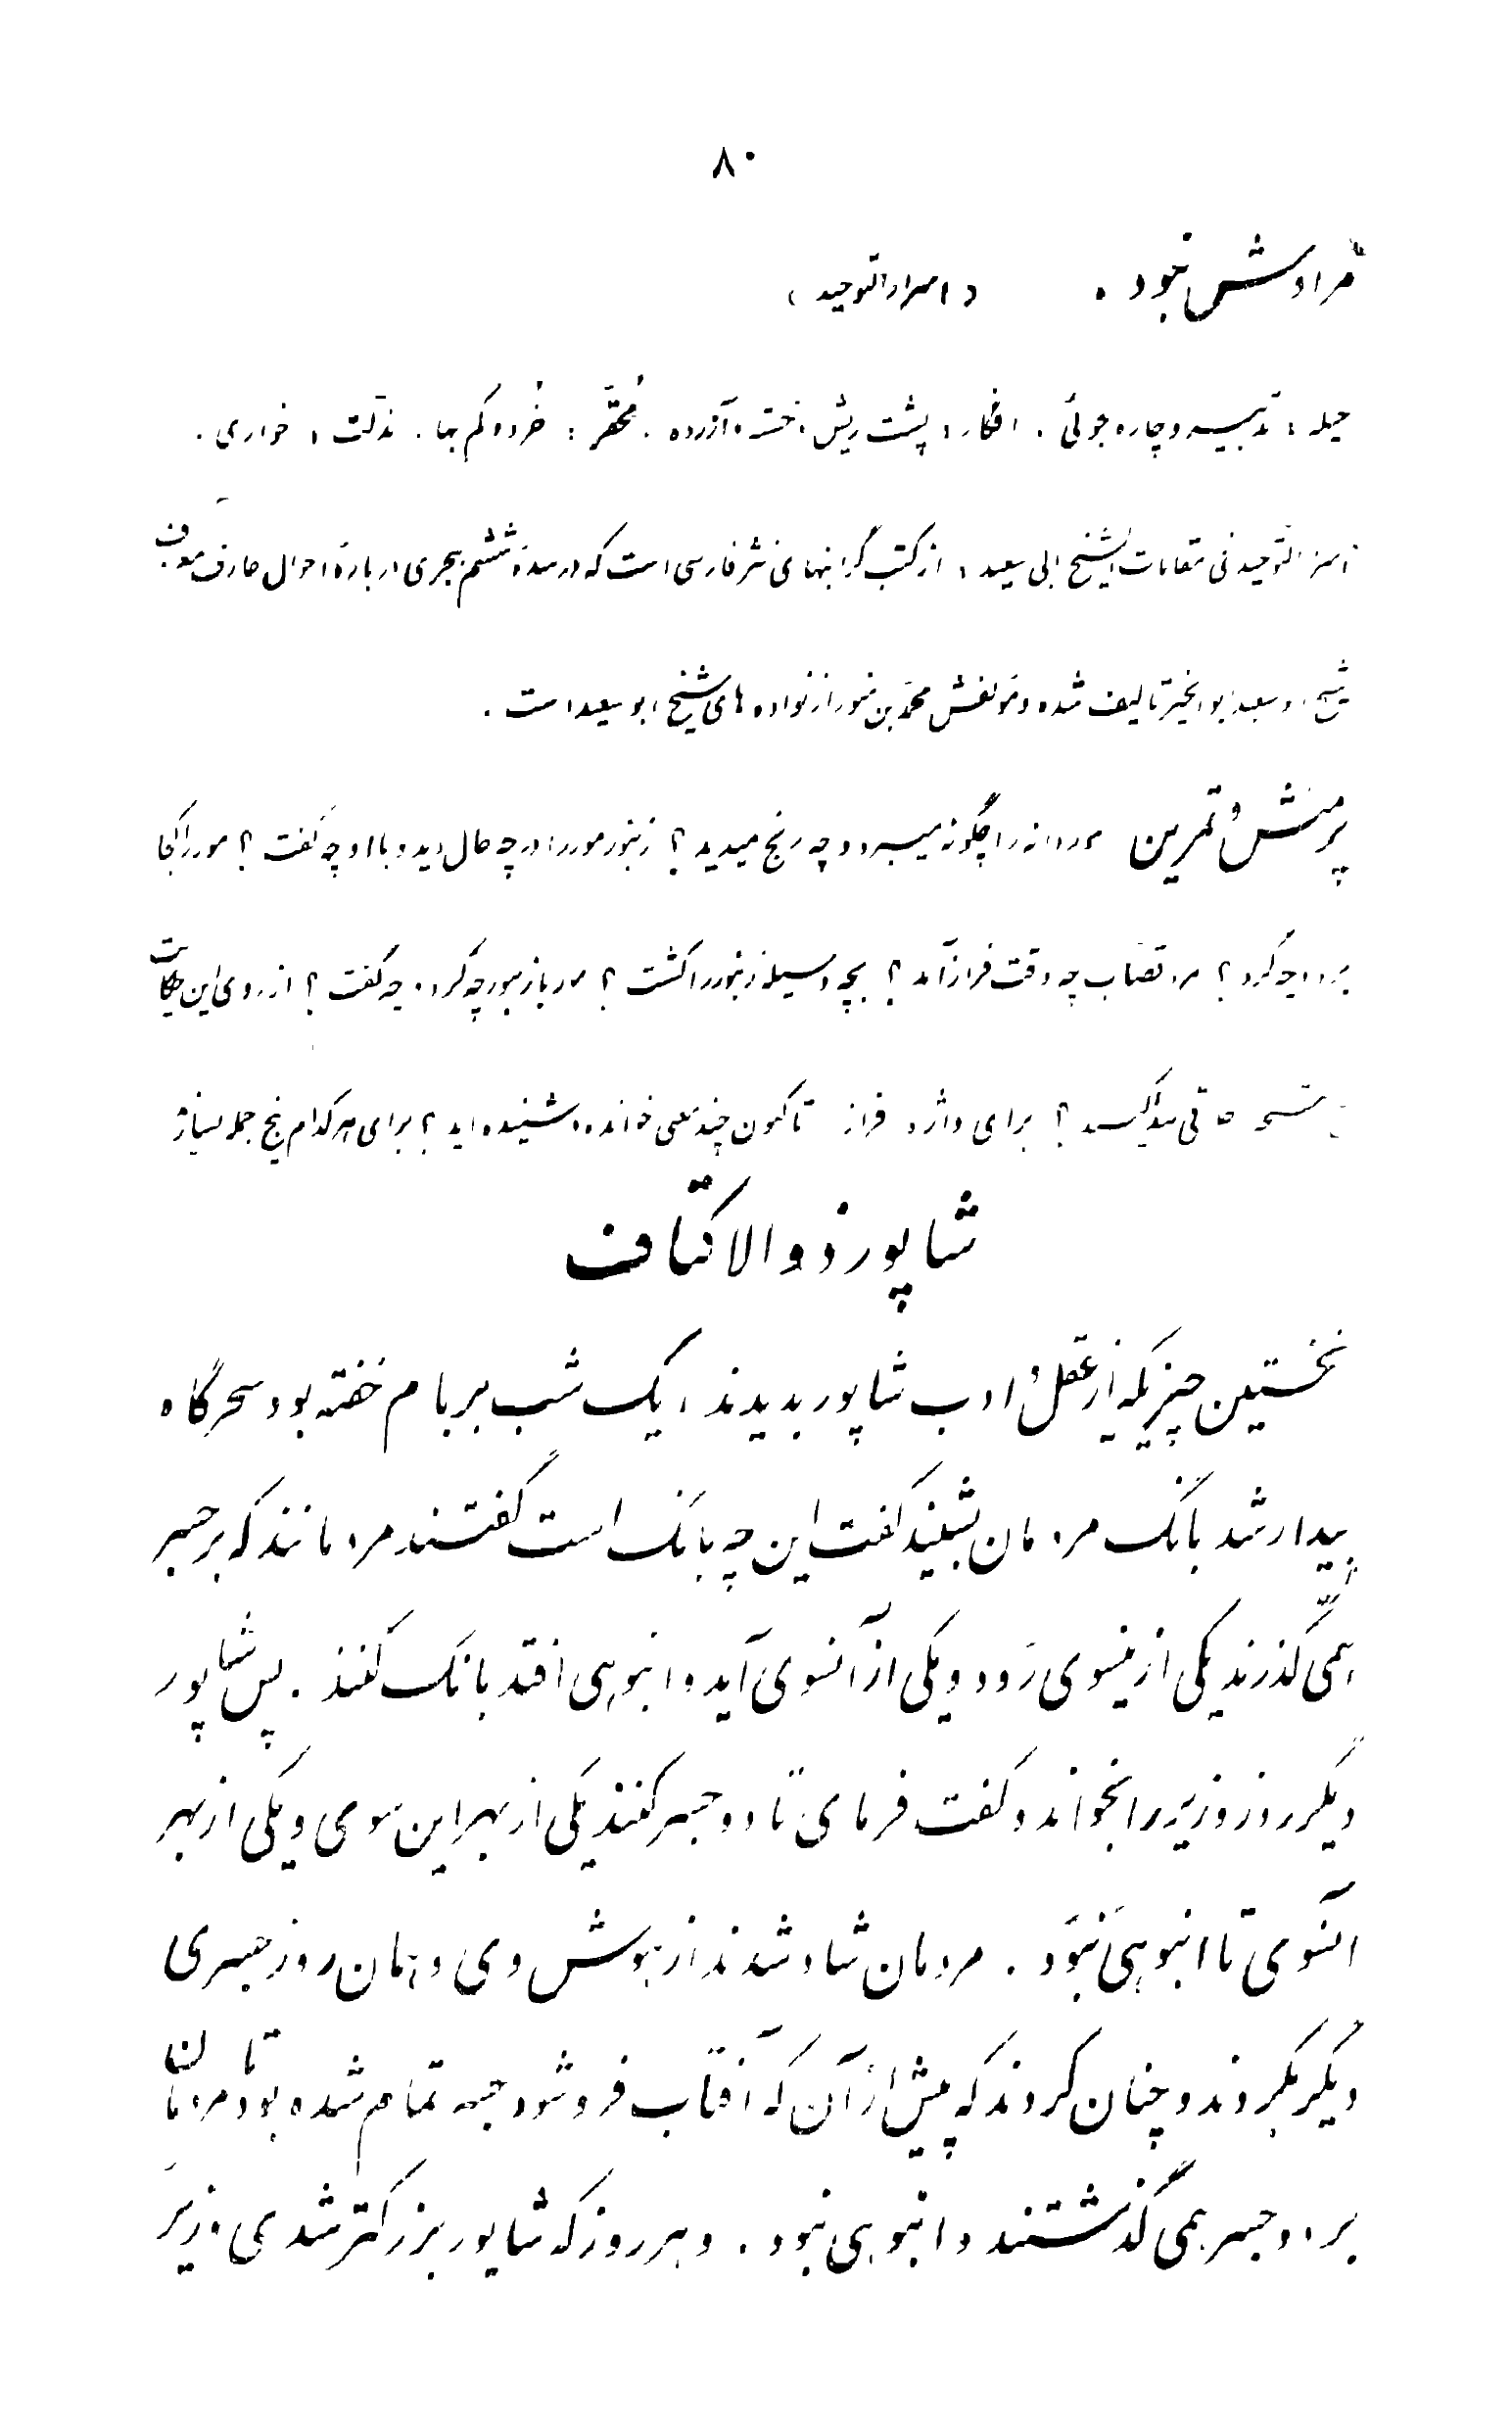 ۸۰
مرادش نبود . (اسرارالتوحید)
حیله : تدبیر و چاره جوئی . افکار : پشت ریش ، خسته ، آزرده . مُحَقَّر : خُرد و کم بها . مذلّت : خواری .
التوحید فی مقامات الشیخ ابی سعید : از کتب گرانبهای نثر فارسی است که در سدهٔ ششم هجری دربارهٔ احوال عارف معروف
شیخ ابوسعید ابوالخیر تألیف شده و مؤلفش محمّد بن منور از نواده های شیخ ابوسعید است .
پرسش و تمرین مور دانه را چگونه میبرد و چه رنج میدید ؟ زنبور مور را در چه حال دید و با او چه گفت ؟ مور را کجا
برد و چه کرد ؟ مرد قصّاب چه وقت فراز آمد ؟ بچه وسیله زنبور را کشت ؟ مور با زنبور چه کرد و چه گفت ؟ از روی این حکایت
چه ؟ برای واژه فراز تا کنون چند معنی خوانده و شنیده اید ؟ برای هر کدام پنج جمله بسازید
شاپور ذوالاکتاف
نخستین چیزیکه از عقل و ادب شاپور بدیدند ، یک شب بر بام خفته بود سحرگاه
بیدار شد بانگ مردمان بشنید گفت این چه بانگ است گفتند مردمانند که بر جسر
همی گذرند یکی ازینسوی رَود و یکی از آنسوی آید و انبوهی افتد بانگ کنند . پس شاپور
دیگر روز وزیر را بخواند و گفت فرمای تا دو جسر کنند یکی از بهر این سوی و یکی از بهر
آنسوی تا انبوهی نبوَد . مردمان شاد شدند از هوش وی و همان روز جسری
دیگر بکردند و چنان کردند که پیش از آن که آفتاب فرو شود جسر تمام شده بود تا مردمان
بر دو جسر همی گذشتند و انبوهی نبود . و هر روز که شاپور بزرگتر شدی وزیر